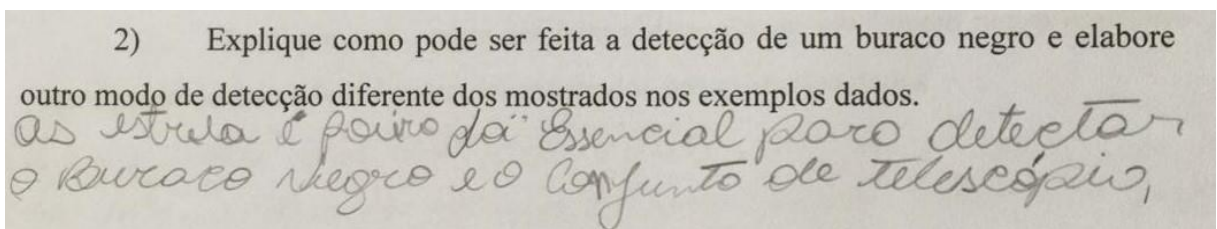 2) Explique como pode ser feita a detecção de um buraco negro e elabore
outro modo de detecção diferente dos mostrados nos exemplos dados.
as estrela é Essencial para detectar
o Buraco Negro e o Conjunto de telescópio,